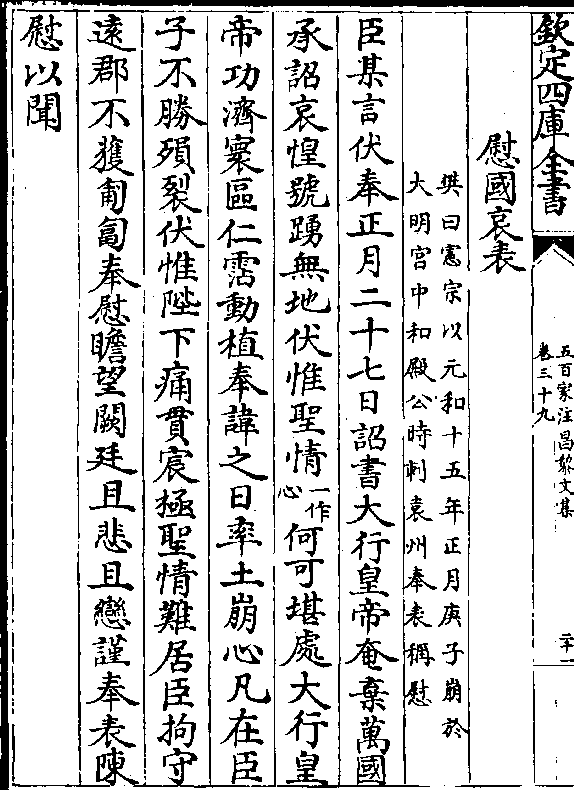 欽定四庫全書
五百家注昌黎文集
卷三十九
二十一
慰國哀表
樊曰憲宗以元和十五年正月庚子崩於
大明宫中和殿公時刺袁州奉表稱慰
臣某言伏奉正月二十七日詔書大行皇帝奄棄萬國
承詔哀惶號踴無地伏惟聖情一作心何可堪處大行皇
帝功濟寰區仁霑動植奉諱之日率土崩心凡在臣
子不勝殞裂伏惟陛下痛貫宸極聖情難居臣拘守
遠郡不獲匍匐奉慰瞻望闕廷且悲且戀謹奉表陳
慰以聞